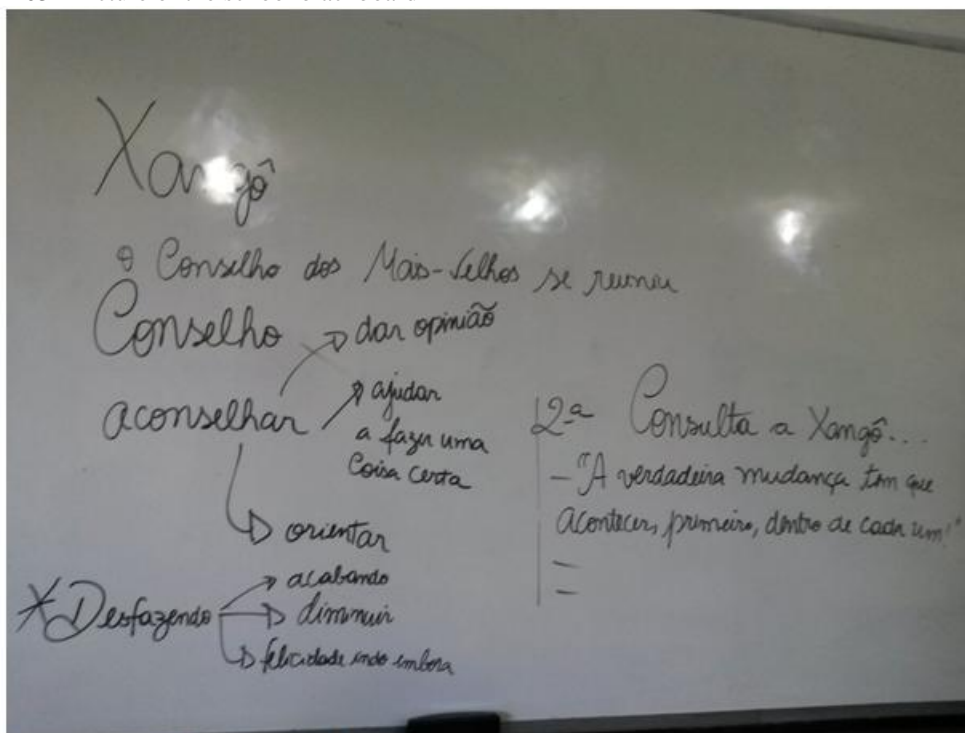 Xangô
O Conselho dos Mais-Velhos se reuniu
Conselho
dar opinião
aconselhar
ajudar
a fazer uma
Coisa certa
orientar
* Desfazendo
acabando
diminuir
felicidade indo embora
2ª Consulta a Xangô...
- "A verdadeira mudança tem que
acontecer, primeiro, dentro de cada um!"